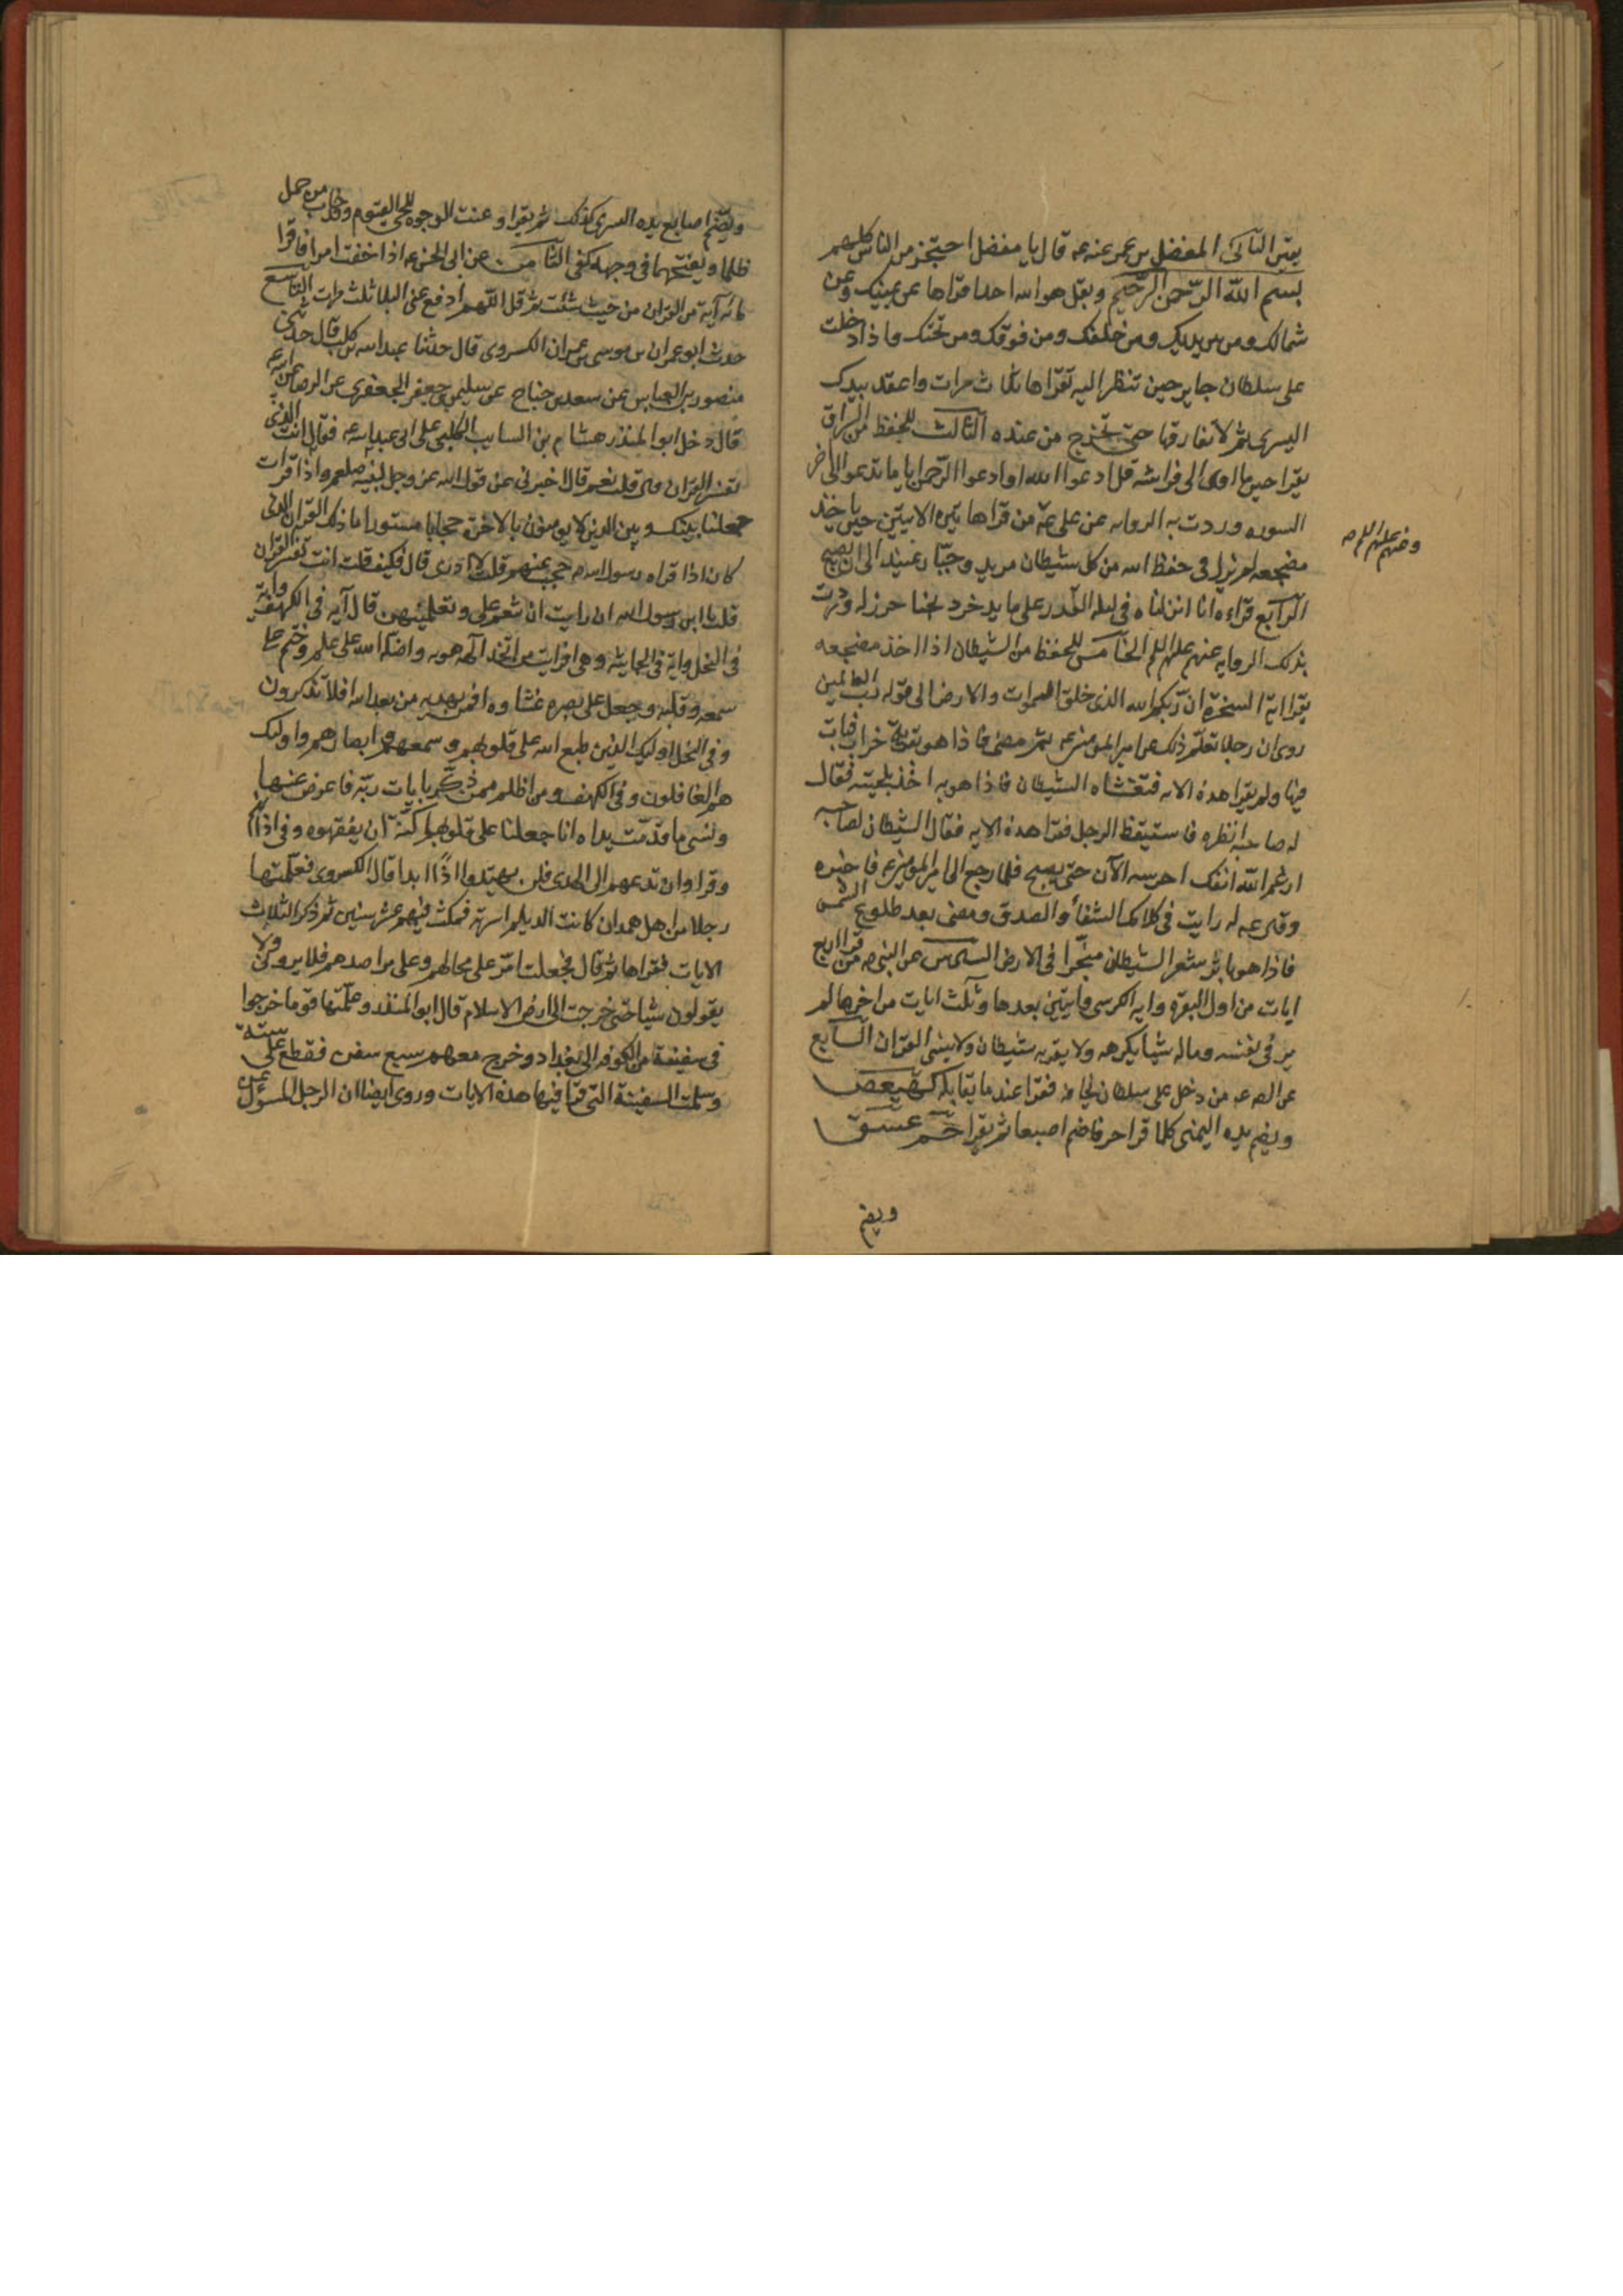 يقين الثاني المفضل بن عمر عنه عه قال يا مفضل احتجز من الناس كلهم
بسم الله الرحمن الرحيم وبقل هو الله احد اقراها عن يمينك وعن
شمالك ومن بين يديك ومن خلفك ومن فوقك ومن تحتك واذا دخلت
على سلطان جاير حين تنظر اليه تقراها ثلاث مرات واعقد بيدك
اليسرى ثم لا تفارقها حتى تخرج من عنده الثالث للحفظ من السراق
يقرا حين ياوى الى فراشه قل ادعوا الله او ادعوا الرحمن ايا ما تدعوا الى اخر
السوره وردت به الروايه عن على عه من قراها تين الايتين حين ياخذ
مضجعه لم يزل في حفظ الله من كل شيطان مريد وجبار عنيد الى ان يصبح
الرابع قراءه انا انزلناه في ليله القدر على ما يدخر ويخبا حرز له وردت
بذلك الروايه عنهم عليهم السلم الخامس للحفظ من الشيطان اذا اخذ مضجعه
يقرا اية السخرة ان ربكم الله الذى خلق السموات والارض الى قوله رب العالمين
روى ان رجلا تعلم ذلك من امير المومنين عه ثم مضى فاذا هو بقرية خراب فبات
فيها ولم يقرا هذه الايه فتغشاه الشيطان فاذا هو به اخذ بلحيته فقال
له صاحبه انظره فاستيقظ الرجل فقرا هذه الايه فقال الشيطان لصاحبه
ارغم الله انفك احرسه الآن حتى يصبح فلما رجع الى امير المومنين عه فاخبره
وقال عه له رايت في كلامك الشفاء والصدق ومضى بعد طلوع الشمس
فاذا هو باثر شعر الشيطان منجرا في الارض السادس عن النبى صه من قرا اربع
ايات من اول البقره وايه الكرسى وايتين بعدها وثلث ايات من اخرها لم
ير في نفسه وماله شيا يكرهه ولا يقربه شيطان ولا ينسى القران السابع
عن الصه عه من دخل على سلطان يخافه فقرا عند ما يقابله كهيعص
ويضم يده اليمنى كلما قرا حرفا ضم اصبعا ثم يقرا حم عسق
ويضم
وضهم عليهم السلم صه
ويضم اصابع يده اليسرى كذلك ثم يقرا وعنت الوجوه للحى القيوم وقد خاب من حمل
ظلما ويفتحهما في وجهه كفى الثامن عن ابى الحسن عه اذا خفت امرا فاقرا
مائه آية من القران من حيث شئت ثم قل اللهم ادفع عنى البلا ثلث مرات التاسع
حدث ابو عمران بن موسى بن عمران الكسروى قال حدثنا عبد الله بن كليب قال حدثنى
منصور بن العباس عن سعد بن جناح عن سليمن بن جعفر الجعفرى عن الرضا عن ابيه عه
قال دخل ابو المنذر هشام بن السايب الكلبى على ابى عبد الله عه فقال انت الذى
تفسر القران قال قلت نعم قال اخبرنى عن قول الله عز وجل لنبيه صلعم واذا قرات
جعلنا بينك وبين الذين لا يومنون بالاخرة حجابا مستورا ما ذلك القران الذى
كان اذا قراه رسول الله صه حجب عنهم قلت لا ادرى قال فكيف قلت انت تفسر القران
قلت يا ابن رسول الله ان رايت ان تنعم على وتعلمنيهن قال آيه في الكهف وايه
في النحل واية في الجاثية وهى افرايت من اتخذ الهه هويه واضله الله على علم وختم على
سمعه وقلبه وجعل على بصره غشاوه افمن يهديه من بعد الله افلا تذكرون
وفي النحل اوليك الذين طبع الله على قلوبهم وسمعهم وابصارهم واوليك
هم الغافلون وفي الكهف ومن اظلم ممن ذكر بايات ربه فاعرض عنها
ونسى ما قدمت يداه انا جعلنا على قلوبهم اكنة ان يفقهوه وفي اذانهم
وقرا وان تدعهم الى الهدى فلن يهتدوا اذا ابدا قال الكسروى فعلمتها
رجلا من اهل همدان كانت الديلم اسرته فمكث فيهم عشر سنين ثم ذكر الثلاث
الايات فقراها ثم قال فجعلت امر على محالهم وعلى مراصدهم فلا يرونى ولا
يقولون شيا حتى خرجت الى ارض الاسلام قال ابو المنذر وعلمتها قوما خرجوا
في سفينة من الكوفه الى بغداد وخرج معهم سبع سفن فقطع على ستة
وسلمت السفينة التى قرا فيها هذه الايات وروى ايضا ان الرجل المسؤل عن